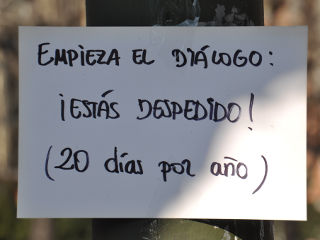 EMPIEZA EL DIÁLOGO:
¡ESTÁS DESPEDIDO!
(20 días por año)